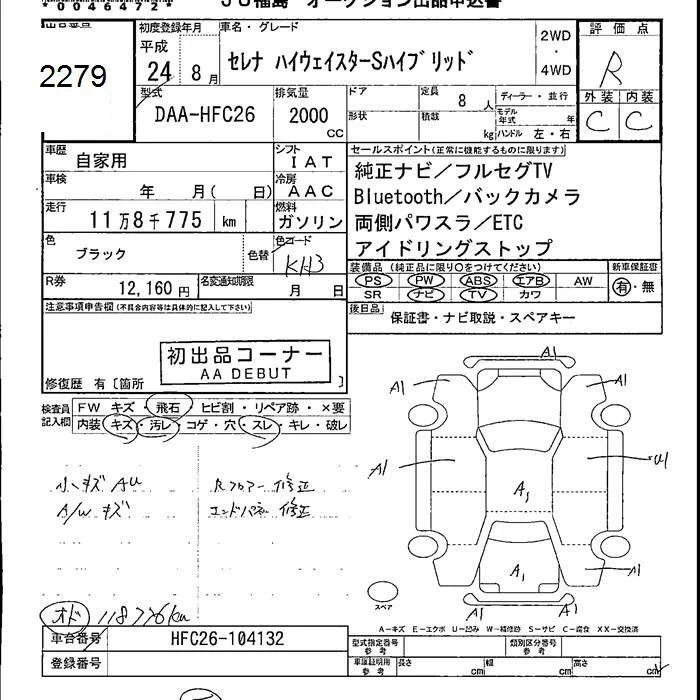 *0040472*
JU福島 オークション出品申込書
出品番号
2279
初度登録年月
平成
24年 8月
車名・グレード
セレナ ハイウェイスターSハイブリッド
2WD
・
4WD
評価点
R
外装 内装
C C
型式
DAA-HFC26
排気量
2000
CC
ドア
形状
定員
8人
積載
kg
ディーラー・並行
モデル年式 年
ハンドル 左・右
車歴
自家用
シフト
IAT
車検
年 月( 日)
冷房
AAC
走行
11万8千775km
燃料
ガソリン
色
ブラック
色替
色コード
KH3
R券
12,160円
名変通知期限
月 日
セールスポイント(正常に機能するものに限ります)
純正ナビ/フルセグTV
Bluetooth/バックカメラ
両側パワスラ/ETC
アイドリングストップ
装備品(純正品に限り○をつけてください)
PS PW ABS エアB AW
SR ナビ TV カワ
新車保証書
有・無
後日品
保証書・ナビ取説・スペアキー
注意事項申告欄(不具合内容等は具体的に記入して下さい)
初出品コーナー
AA DEBUT
修復歴 有〔箇所 〕
検査員記入欄
FW キズ・飛石・ヒビ割・リペア跡・×要
内装 キズ・汚レ・コゲ・穴・スレ・キレ・破レ
小キズ AU
A/W キズ
Rフロアー修正
エンドパネル修正
A1
A1 A1
A1 U1
A1
A1 A1
A1 A1
スペア
オド 118776km
A-キズ E-エクボ U-凹み W-補修跡 S-サビ C-腐食 XX-交換済
車台番号
HFC26-104132
登録番号
型式指定番号
参考
類別区分番号
参考
車庫証明用
参考
長さ cm
幅 cm
高さ cm